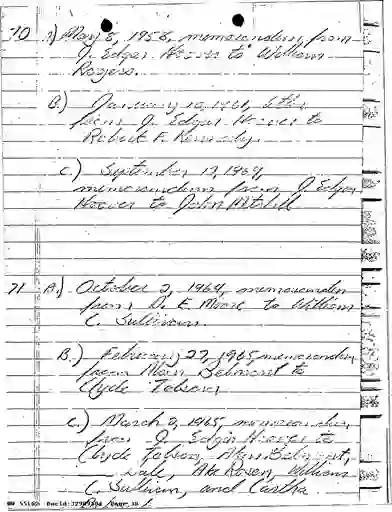 70 A.) May 8, 1958, memorandum from
J. Edgar Hoover to William
Rogers.
B.) January 10, 1961, letter
from J. Edgar Hoover to
Robert F. Kennedy.
C.) September 17, 1969,
memorandum from J. Edgar
Hoover to John Mitchell
71 A.) October 2, 1964, memorandum
from D. E. Moore to William
C. Sullivan
B.) February 27, 1965 memorandum
from Alan Belmont to
Clyde Tolson
C.) March 2, 1965, memorandum
from J. Edgar Hoover to
Clyde Tolson, Alan Belmont,
Gale, Alex Rosen, William
C. Sullivan, and Cartha
DocId: Page 38